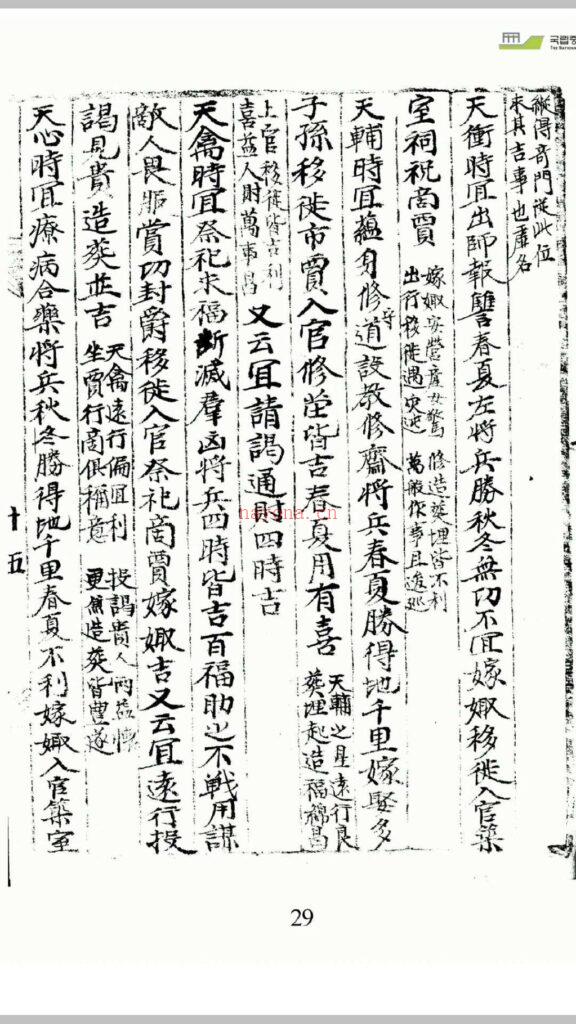 縱得奇門從此位
求其吉事也虛名
天衝時宜出師報讐春夏左將兵勝秋冬無功不宜嫁娵移徙入官築
室祠祝啇賈
嫁娵安營産女驚
出行移徙遇灾迍
修造葬埋皆不利
萬般作事且逡巡
天輔時宜藴身修守道設教修齋將兵春夏勝得地千里嫁娶多
子孫移徙市賈入官修塋皆吉春夏用有喜
天輔之星遠行良
葬埋起造福綿昌
上官移徙皆吉利
喜益人財萬事昌
又云宜請謁通財四時吉
天禽時宜祭祀求福斷滅羣凶將兵四時皆吉百福助之不戰用謀
敵人畏服賞功封爵移徙入官祭祀啇賈嫁娵吉又云宜遠行投
謁見貴造葬並吉
天禽遠行偏宜利
坐賈行商俱稱意
投謁貴人兩益懷
更兼造葬皆豐遂
天心時宜療病合藥將兵秋冬勝得地千里春夏不利嫁娵入官築室
十五
29
nayona.cn